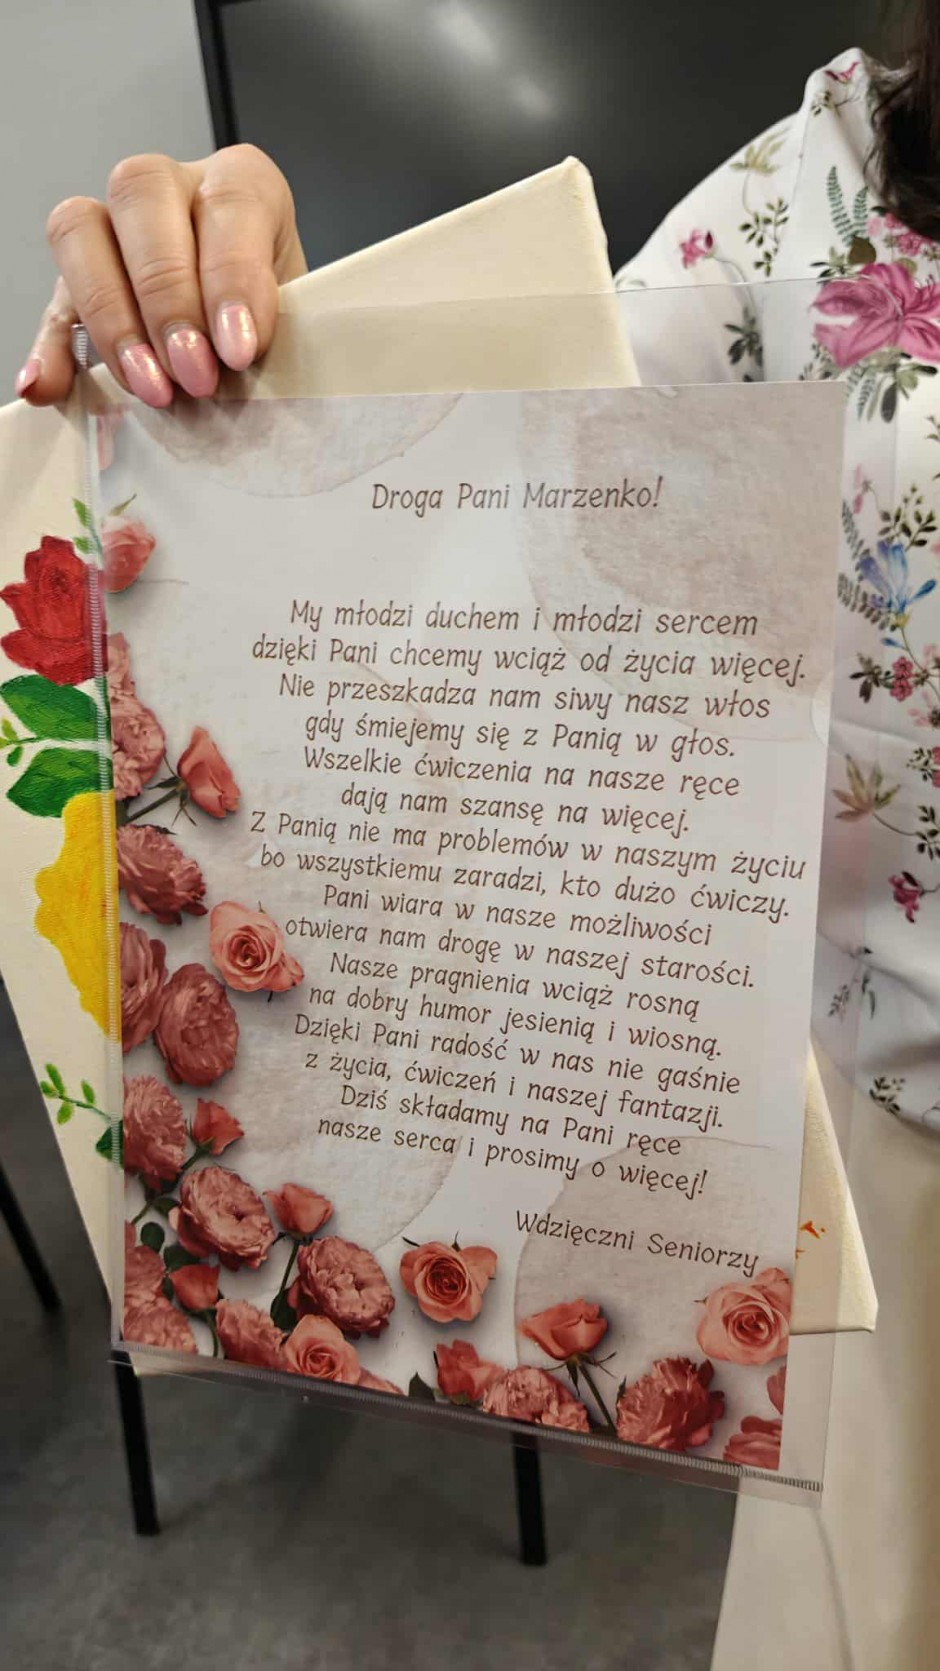 Droga Pani Marzenko!
My młodzi duchem i młodzi sercem
dzięki Pani chcemy wciąż od życia więcej.
Nie przeszkadza nam siwy nasz włos
gdy śmiejemy się z Panią w głos.
Wszelkie ćwiczenia na nasze ręce
dają nam szansę na więcej.
Z Panią nie ma problemów w naszym życiu
bo wszystkiemu zaradzi, kto dużo ćwiczy.
Pani wiara w nasze możliwości
otwiera nam drogę w naszej starości.
Nasze pragnienia wciąż rosną
na dobry humor jesienią i wiosną.
Dzięki Pani radość w nas nie gaśnie
z życia, ćwiczeń i naszej fantazji.
Dziś składamy na Pani ręce
nasze serca i prosimy o więcej!
Wdzięczni Seniorzy